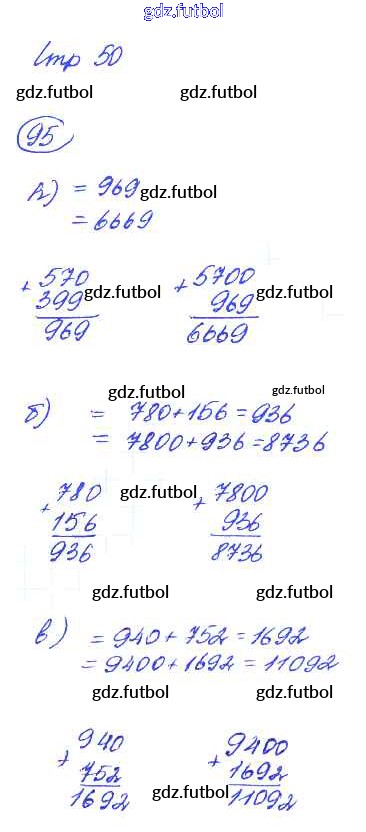 gdz.futbol
Стр 50
gdz.futbol gdz.futbol
95
А) = 969 gdz.futbol
= 6669
+ 570 + 5700
399 gdz.futbol 969 gdz.futbol
969 6669
gdz.futbol gdz.futbol
б) = 780+156=936
= 7800+936=8736
+ 780 gdz.futbol + 7800
156 936
936 8736
gdz.futbol gdz.futbol
в) = 940+752=1692
= 9400+1692=11092
gdz.futbol gdz.futbol
+ 940 + 9400
752 gdz.futbol 1692 gdz.futbol
1692 11092